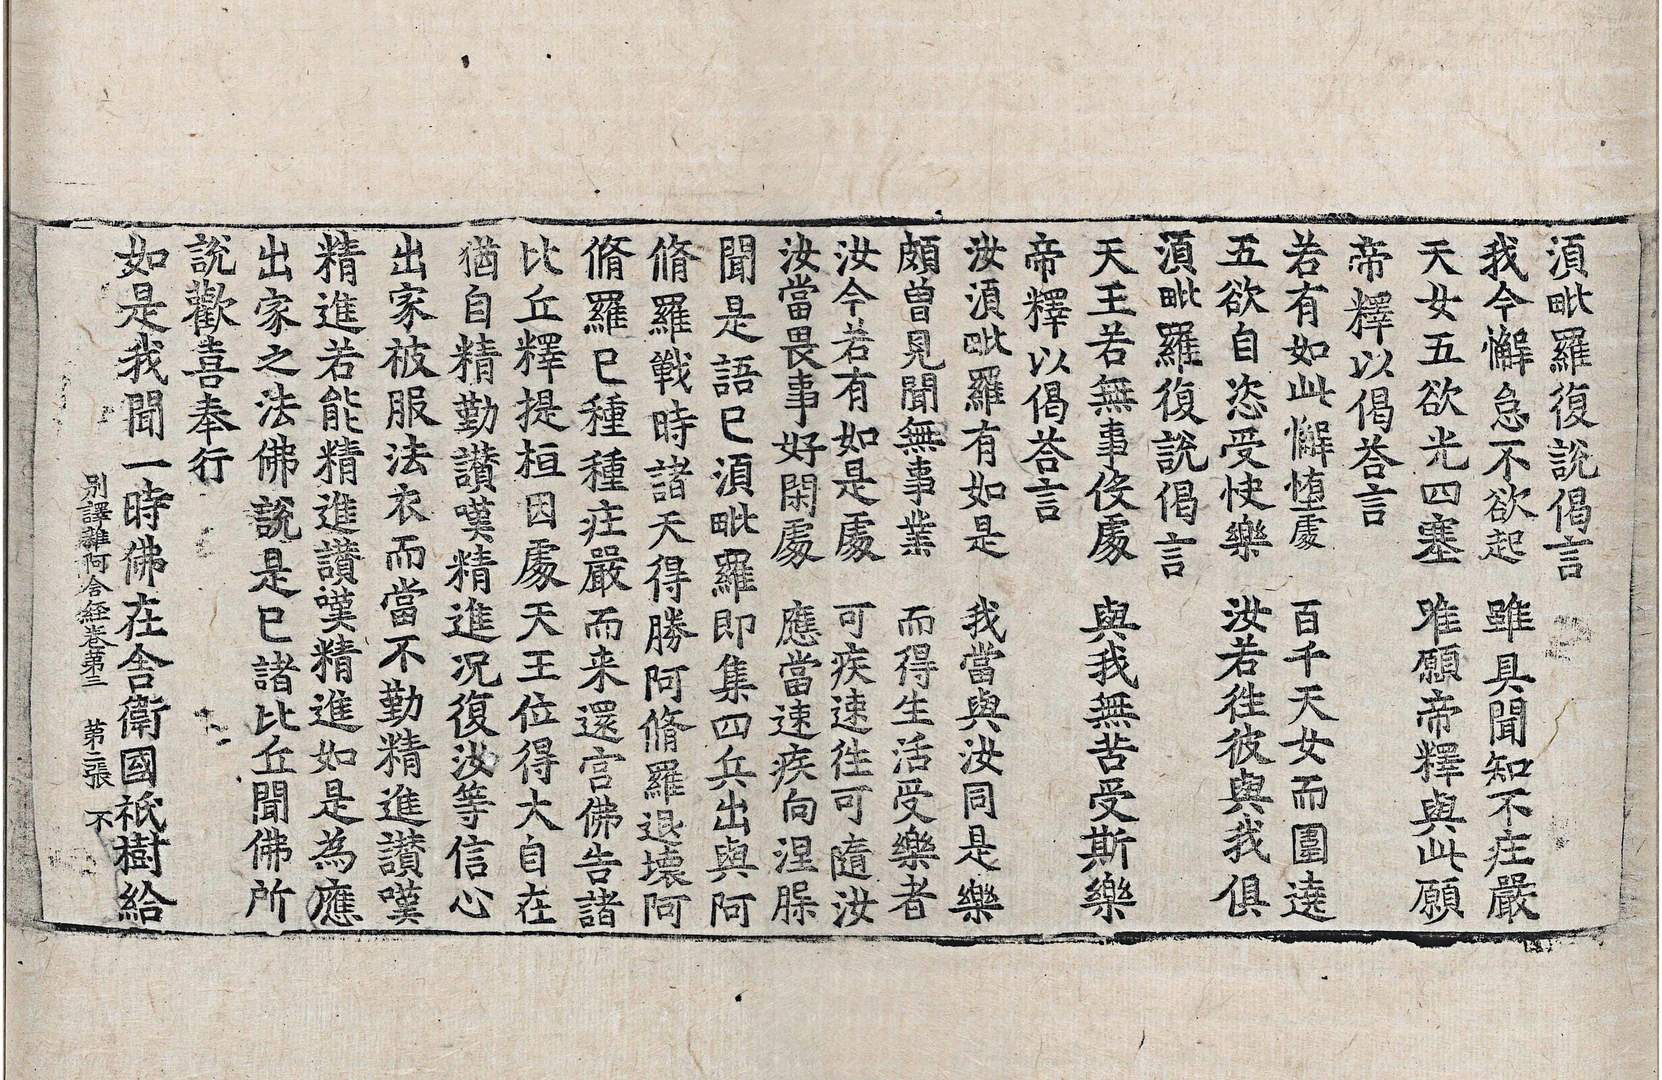 湏毗羅復說偈言
我今懈怠不欲起　雖具聞知不庄嚴
天女五欲光四塞　唯願帝釋與此願
帝釋以偈荅言
若有如此懈憜處　百千天女而圍遶
五欲自恣受快樂　汝若徃彼與我俱
湏毗羅復說偈言
天王若無事佞處　與我無苦受斯樂
帝釋以偈荅言
汝湏毗羅有如是　我當與汝同是樂
頗曾見聞無事業　而得生活受樂者
汝今若有如是處　可疾速徃可隨汝
汝當畏事好閑處　應當速疾向涅槃
聞是語已湏毗羅即集四兵出與阿
脩羅戰時諸天得勝阿脩羅退壞阿
脩羅已種種庄嚴而来還宫佛告諸
比丘釋提桓因處天王位得大自在
猶自精勤讃嘆精進况復汝等信心
出家被服法衣而當不勤精進讃嘆
精進若能精進讃嘆精進如是為應
出家之法佛說是已諸比丘聞佛所
說歡喜奉行
如是我聞一時佛在舍衛國祇樹給
別譯雜阿含経卷第三　第二張　不